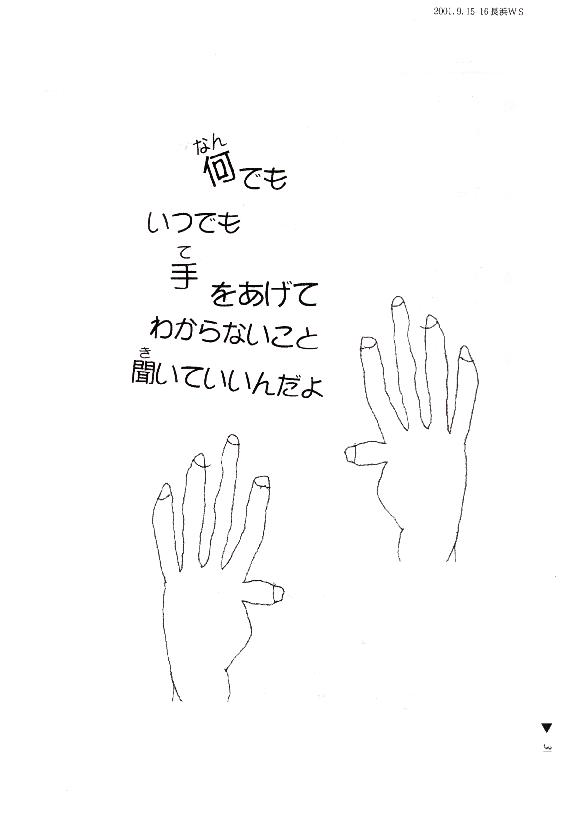 2001.9.15-16 長浜WS
なん
何でも
いつでも
て
手をあげて
わからないこと
き
聞いていいんだよ
▼
3